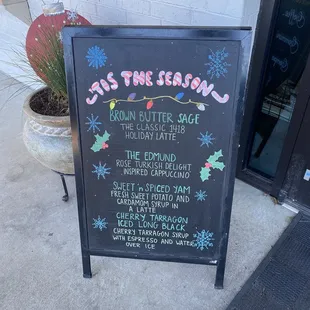 'TIS THE SEASON
BROWN BUTTER SAGE
THE CLASSIC 3418
HOLIDAY LATTE
THE EDMUND
ROSE TURKISH DELIGHT
INSPIRED CAPPUCCINO
SWEET 'N SPICED YAM
FRESH SWEET POTATO AND
CARDAMOM SYRUP IN
A LATTE
CHERRY TARRAGON
ICED LONG BLACK
CHERRY TARRAGON SYRUP
WITH ESPRESSO AND WATER
OVER ICE